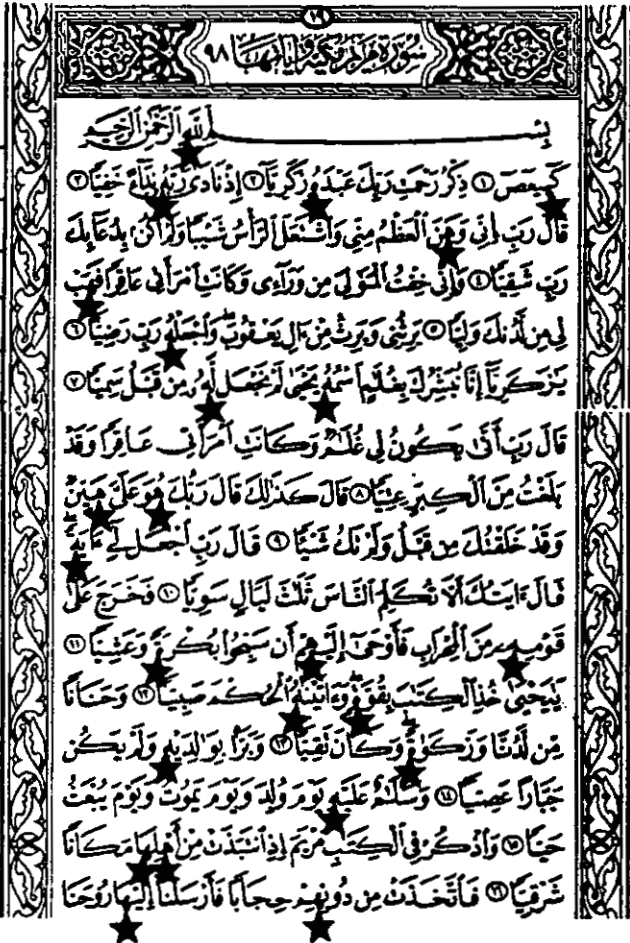 ١٩
سُورَةُ مَرْيَمَ مَكِّيَّةٌ وَآيَاتُهَا ٩٨
بِسْمِ ٱللَّهِ ٱلرَّحْمَٰنِ ٱلرَّحِيمِ
كٓهيعٓصٓ ١ ذِكْرُ رَحْمَتِ رَبِّكَ عَبْدَهُۥ زَكَرِيَّآ ٢ إِذْ نَادَىٰ رَبَّهُۥ نِدَآءً خَفِيًّا ٣
قَالَ رَبِّ إِنِّى وَهَنَ ٱلْعَظْمُ مِنِّى وَٱشْتَعَلَ ٱلرَّأْسُ شَيْبًا وَلَمْ أَكُنۢ بِدُعَآئِكَ
رَبِّ شَقِيًّا ٤ وَإِنِّى خِفْتُ ٱلْمَوَٰلِىَ مِن وَرَآءِى وَكَانَتِ ٱمْرَأَتِى عَاقِرًا فَهَبْ
لِى مِن لَّدُنكَ وَلِيًّا ٥ يَرِثُنِى وَيَرِثُ مِنْ ءَالِ يَعْقُوبَ ۖ وَٱجْعَلْهُ رَبِّ رَضِيًّا ٦
يَٰزَكَرِيَّآ إِنَّا نُبَشِّرُكَ بِغُلَٰمٍ ٱسْمُهُۥ يَحْيَىٰ لَمْ نَجْعَل لَّهُۥ مِن قَبْلُ سَمِيًّا ٧
قَالَ رَبِّ أَنَّىٰ يَكُونُ لِى غُلَٰمٌ وَكَانَتِ ٱمْرَأَتِى عَاقِرًا وَقَدْ
بَلَغْتُ مِنَ ٱلْكِبَرِ عِتِيًّا ٨ قَالَ كَذَٰلِكَ قَالَ رَبُّكَ هُوَ عَلَىَّ هَيِّنٌ
وَقَدْ خَلَقْتُكَ مِن قَبْلُ وَلَمْ تَكُ شَيْـًٔا ٩ قَالَ رَبِّ ٱجْعَل لِّىٓ ءَايَةً ۚ
قَالَ ءَايَتُكَ أَلَّا تُكَلِّمَ ٱلنَّاسَ ثَلَٰثَ لَيَالٍ سَوِيًّا ١٠ فَخَرَجَ عَلَىٰ
قَوْمِهِۦ مِنَ ٱلْمِحْرَابِ فَأَوْحَىٰٓ إِلَيْهِمْ أَن سَبِّحُوا۟ بُكْرَةً وَعَشِيًّا ١١
يَٰيَحْيَىٰ خُذِ ٱلْكِتَٰبَ بِقُوَّةٍ ۖ وَءَاتَيْنَٰهُ ٱلْحُكْمَ صَبِيًّا ١٢ وَحَنَانًا
مِّن لَّدُنَّا وَزَكَوٰةً ۖ وَكَانَ تَقِيًّا ١٣ وَبَرًّۢا بِوَٰلِدَيْهِ وَلَمْ يَكُن
جَبَّارًا عَصِيًّا ١٤ وَسَلَٰمٌ عَلَيْهِ يَوْمَ وُلِدَ وَيَوْمَ يَمُوتُ وَيَوْمَ يُبْعَثُ
حَيًّا ١٥ وَٱذْكُرْ فِى ٱلْكِتَٰبِ مَرْيَمَ إِذِ ٱنتَبَذَتْ مِنْ أَهْلِهَا مَكَانًا
شَرْقِيًّا ١٦ فَٱتَّخَذَتْ مِن دُونِهِمْ حِجَابًا فَأَرْسَلْنَآ إِلَيْهَا رُوحَنَا